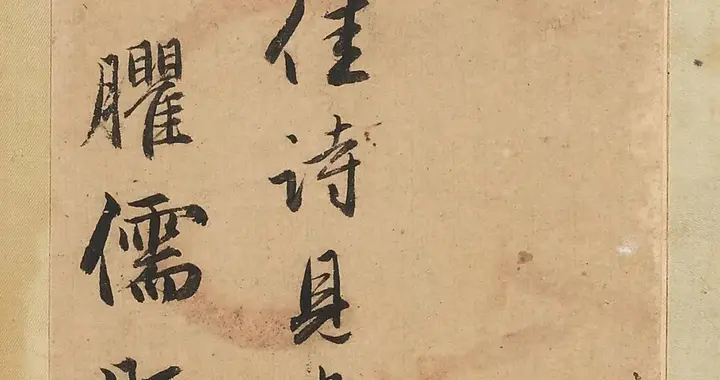 佳詩見
臞儒